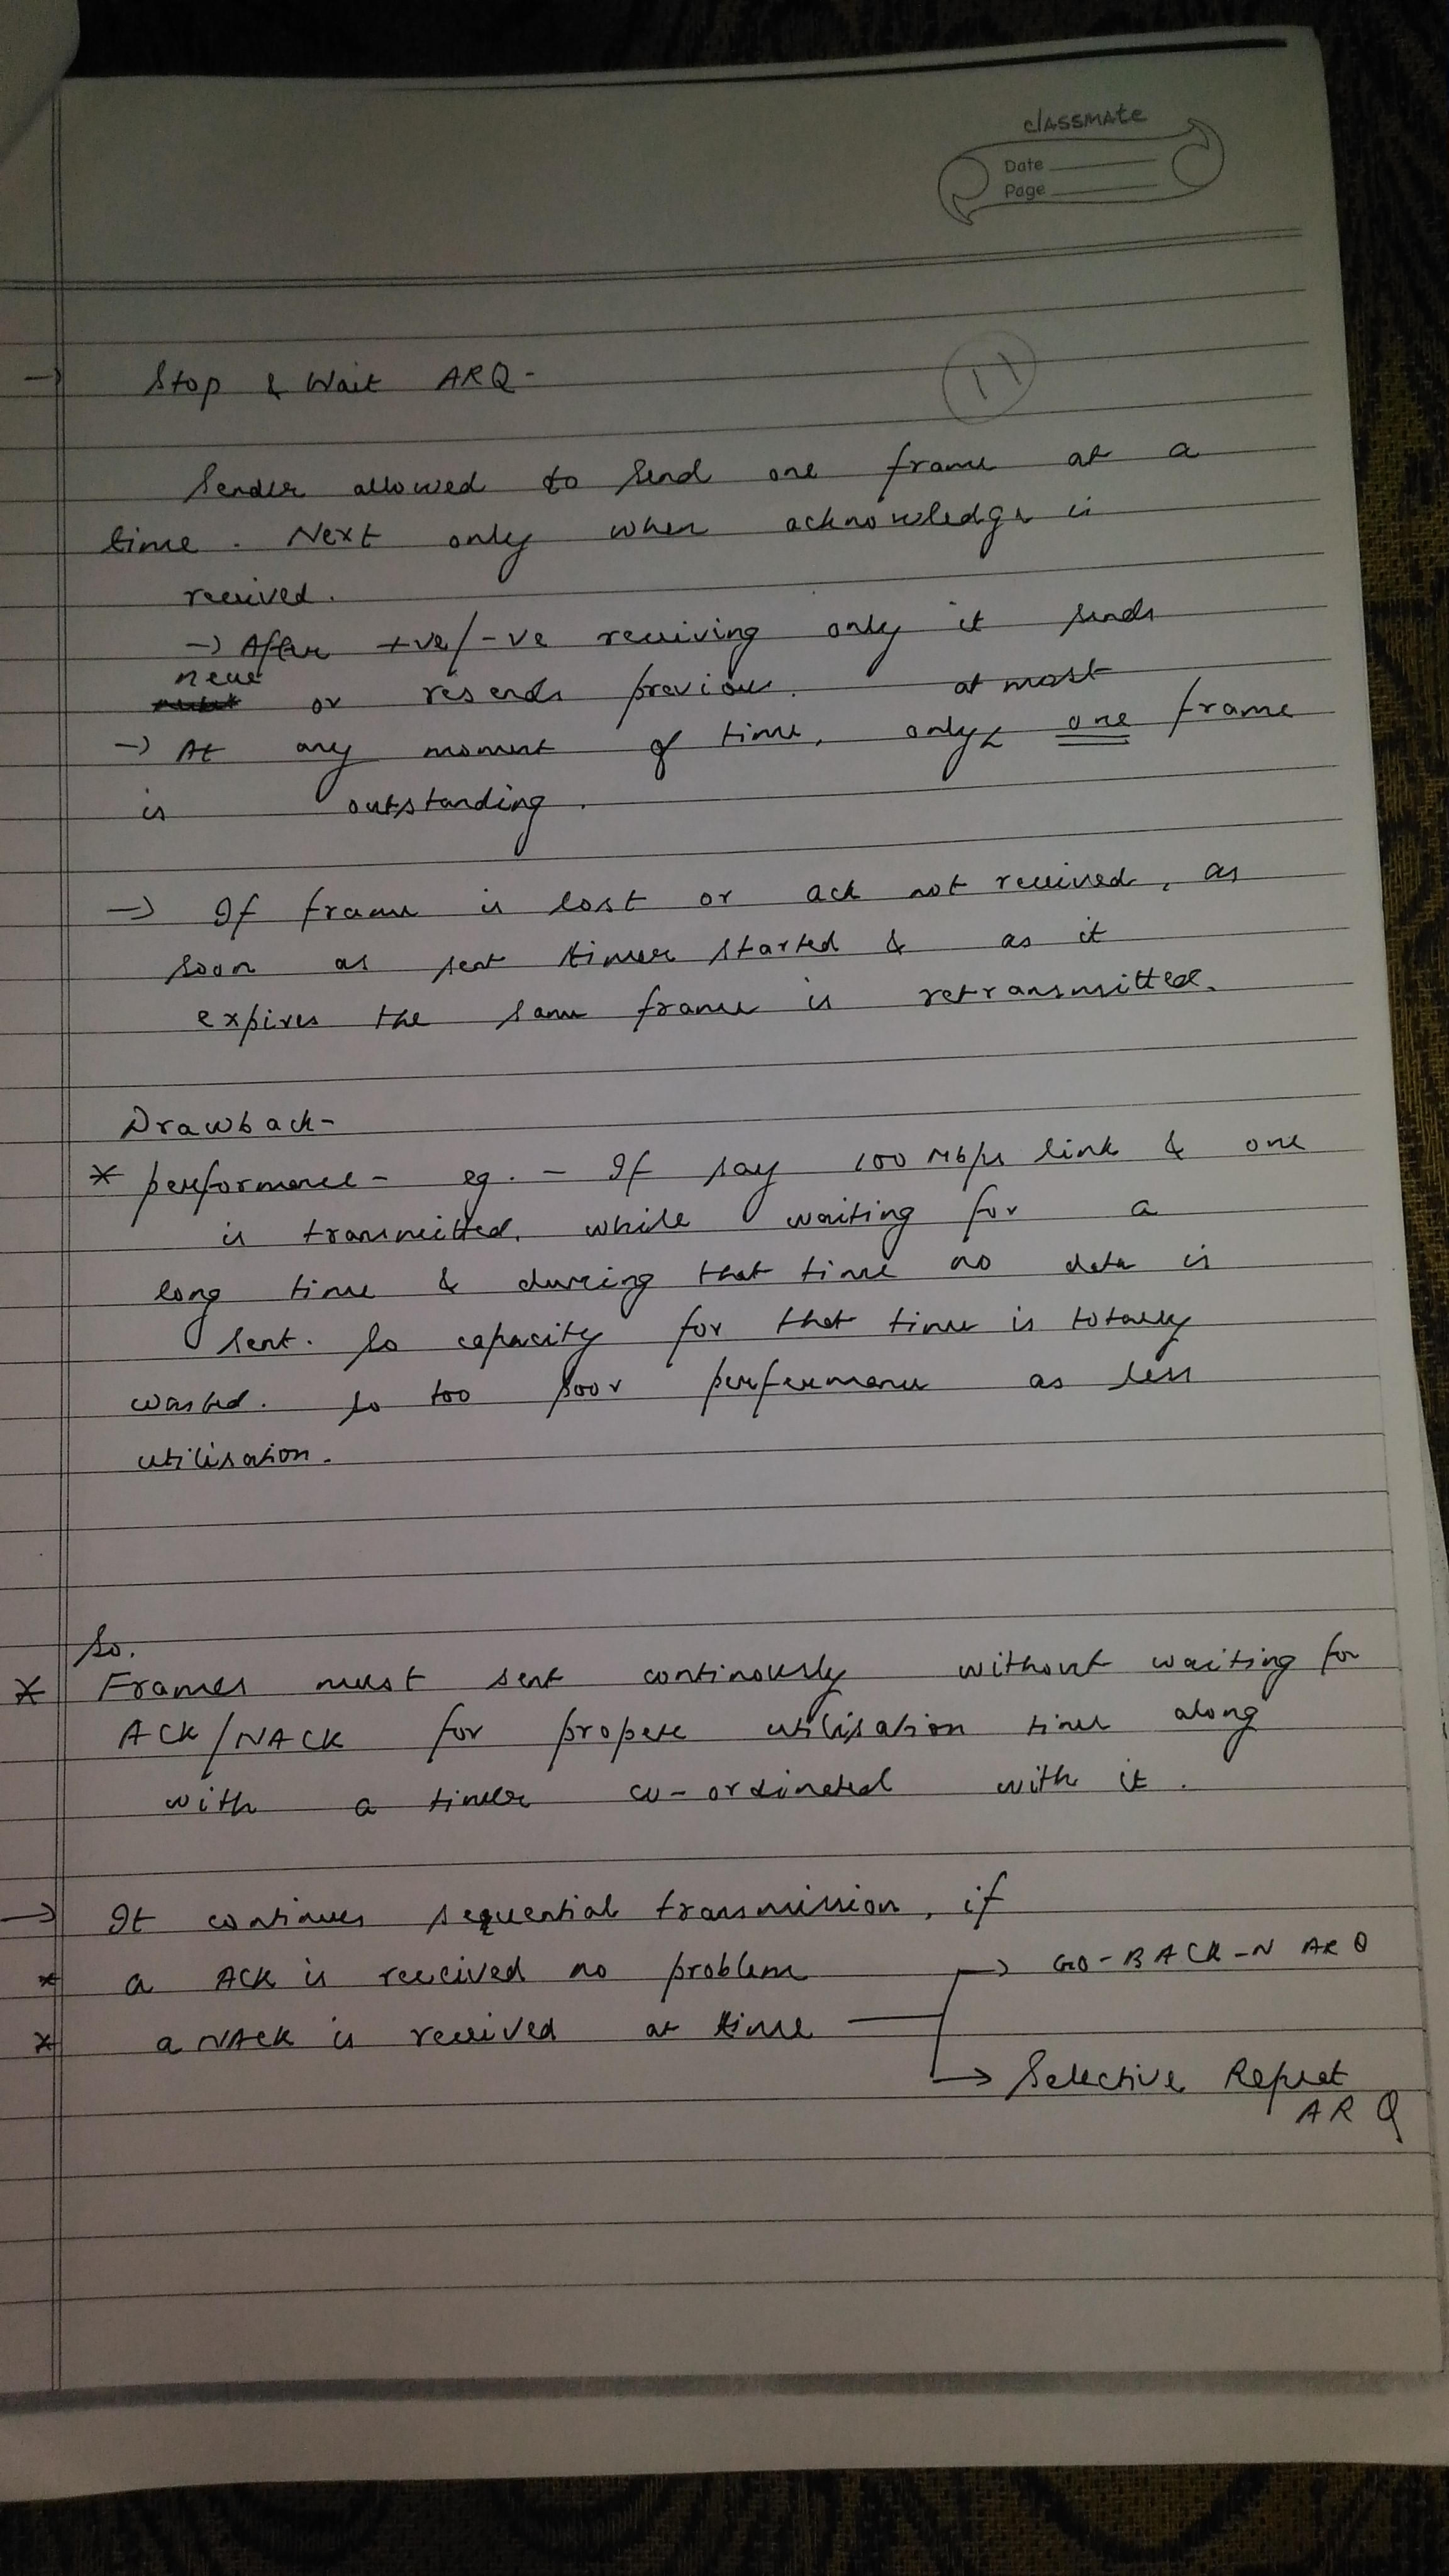 classmate
Date
Page
→ Stop & Wait ARQ -
11
Sender allowed to send one frame at a
time. Next only when acknowledge is
received.
→ After +ve/-ve receiving only it sends
new
or resends previous. at most
→ At any moment of time, only one frame
is outstanding.
→ If frame is lost or ack not received, as
soon as sent timer started & as it
expires the same frame is retransmitted.
Drawback-
* performance - eg. - If say 100 Mbps link & one
is transmitted, while waiting for a
long time & during that time no data is
sent. So capacity for that time is totally
wasted. So too poor performance as less
utilisation.
So,
* Frames must sent continously without waiting for
ACK/NACK for proper utilisation time along
with a timer co-ordinated with it.
→ It continues sequential transmission, if
* a ACK is received no problem → GO-BACK-N ARQ
* a NACK is received at time
→ Selective Repeat
ARQ